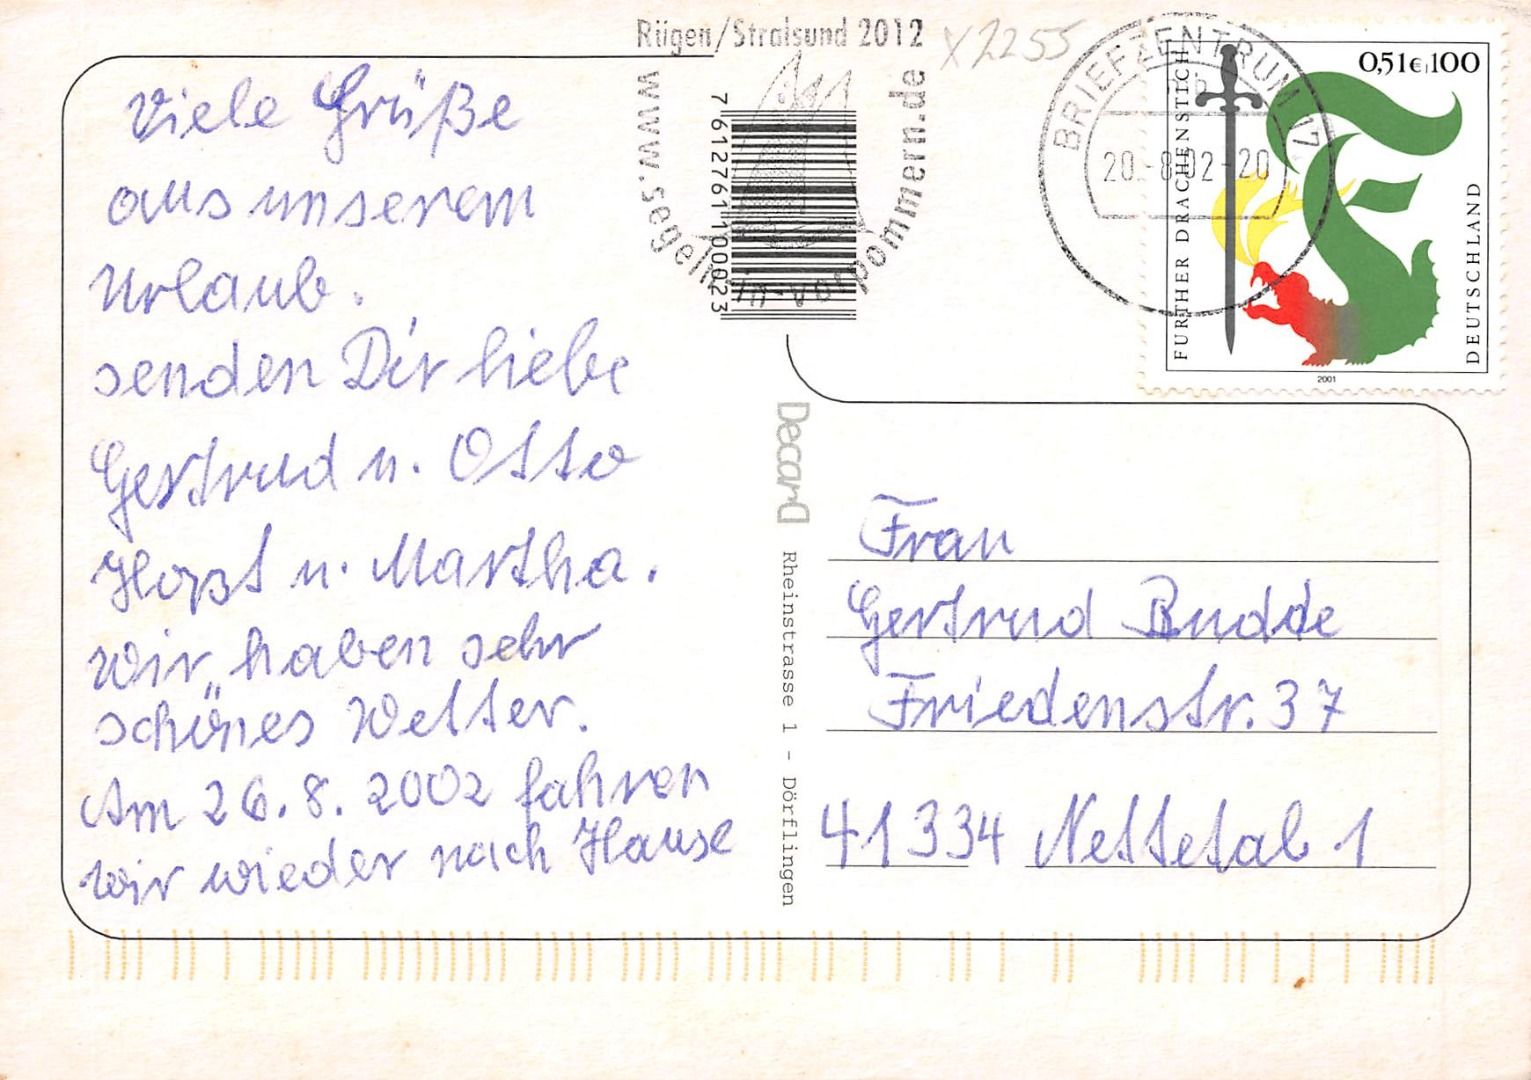 Viele Grüße
aus unserem
Urlaub.
senden Dir liebe
Gertrud u. Otto
Horst u. Martha.
wir haben sehr
schönes Wetter.
Am 26.8.2002 fahren
wir wieder nach Hause
Rügen/Stralsund 2012
www.segeln-in-vorpommern.de
7 612761 100023
X2255
BRIEFZENTRUM 17
b
20.-8.02-20
0,51€ 100
FURTHER DRACHENSTICH
DEUTSCHLAND
2001
Decard
Rheinstrasse 1 - Dörflingen
Frau
Gertrud Budde
Friedenstr. 37
41334 Nettetal 1